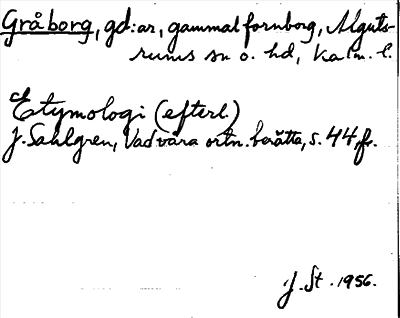 Gråborg, gd:ar, gammal fornborg, Alguts-
rums sn o. hd, Kalm. l.
Etymologi (efterl.)
J. Sahlgren, Vad våra ortn. berätta, s. 44, f.
J. St. 1956.